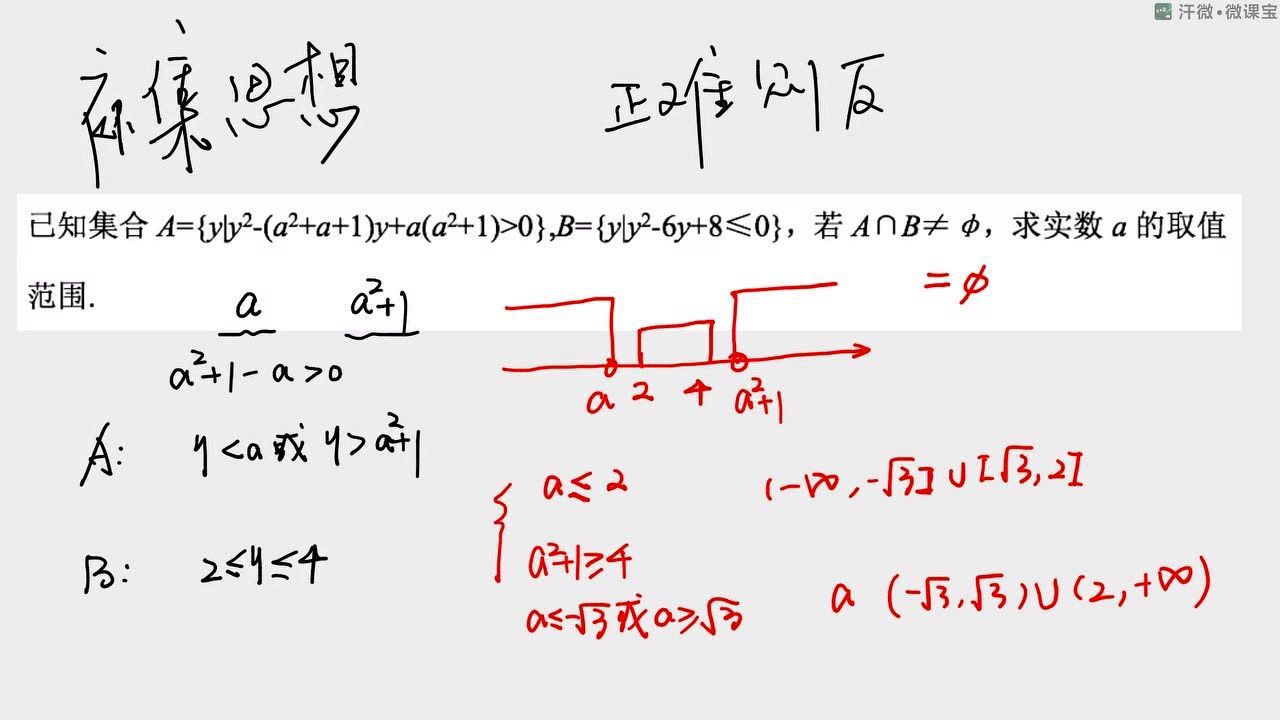 汗微·微课宝
补集思想 正难则反
已知集合 A={y|y²-(a²+a+1)y+a(a²+1)>0},B={y|y²-6y+8≤0}，若 A∩B≠ φ，求实数 a 的取值
范围.
= φ
a a²+1
a²+1-a>0
a 2 4 a²+1
A: y<a或 y>a²+1
a≤2 (-∞,-√3]∪[√3,2]
B: 2≤y≤4
a²+1≥4
a≤-√3或a≥√3
a (-√3,√3)∪(2,+∞)